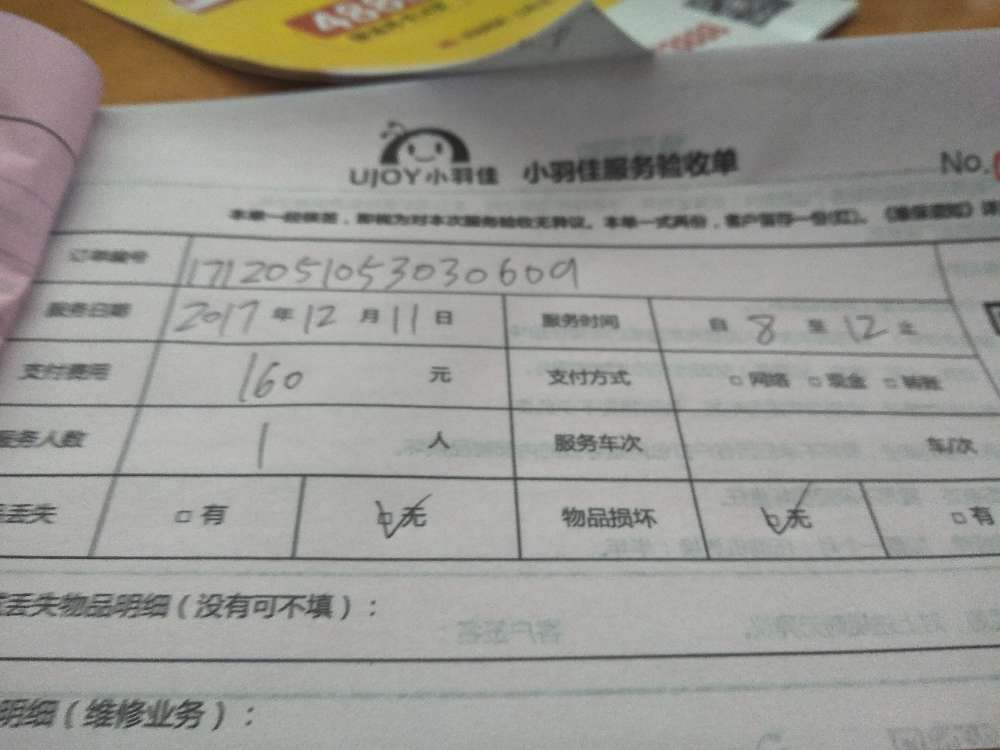 488
UJOY小羽佳 小羽佳服务验收单 No.
本单一经签署，即视为对本次服务验收无异议。本单一式两份，客户留存一份(红)。《维保须知》详
订单编号 1712051053030609
服务日期 2017 年 12 月 11 日 服务时间 自 8 至 12 止
支付费用 160 元 支付方式 □ 网络 □ 现金 □ 转账
服务人数 1 人 服务车次 车/次
丢失 □ 有 □ 无 物品损坏 □ 无 □ 有
丢失物品明细（没有可不填）：
客户签名：
明细（维修业务）：